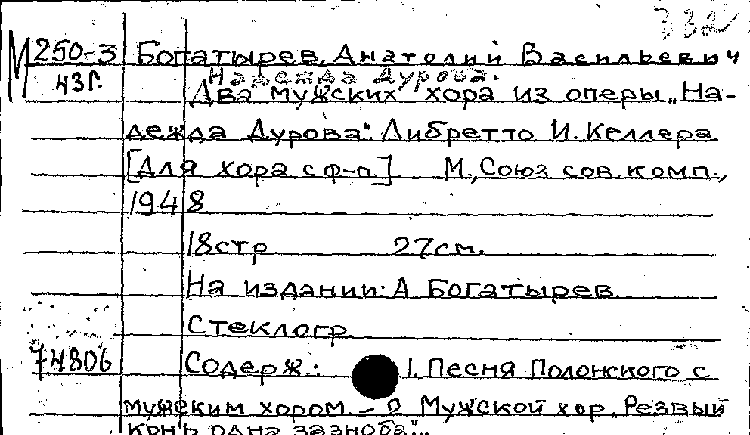 332
М 250-3 Богатырев, Анатолий Васильевич
43г. Надежда Дурова.
Два мужских хора из оперы „На-
дежда Дурова". Либретто И. Келлера
[Для хора с ф-п.] М., Союз сов. комп.,
1948
18 стр 27 см.
На издании: А Богатырев
Стеклогр
74806 Содерж.: 1. Песня Полонского с
мужским хором. – 2. Мужской хор „Резвый
конь одна зазноба"...